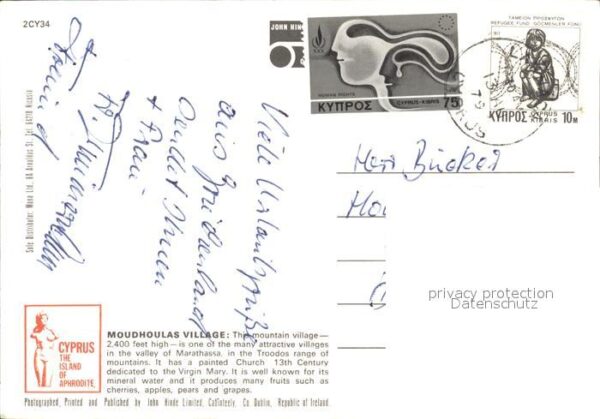 2CY34
JOHN HIN
HUMAN RIGHTS
ΚΥΠΡΟΣ CYPRUS-KIBRIS 75
ΤΑΜΕΙΟΝ ΠΡΟΣΦΥΓΩΝ
REFUGEE FUND GÖÇMENLER FONU
ΚΥΠΡΟΣ CYPRUS KIBRIS 10M
CYPRUS
79
Viele Urlaubsgrüße
aus Griechenland
sendet Ihnen
+ Frau
Herr Bücker
privacy protection
Datenschutz
Sole Distributor: Mono Ltd., Tel. Nicosia
CYPRUS
THE
ISLAND
OF
APHRODITE.
MOUDHOULAS VILLAGE: The mountain village—
2,400 feet high — is one of the many attractive villages
in the valley of Marathassa, in the Troodos range of
mountains. It has a painted Church 13th Century
dedicated to the Virgin Mary. It is well known for its
mineral water and it produces many fruits such as
cherries, apples, pears and grapes.
Photographed, Printed and Published by John Hinde Limited, Cabinteely, Co Dublin, Republic of Ireland.